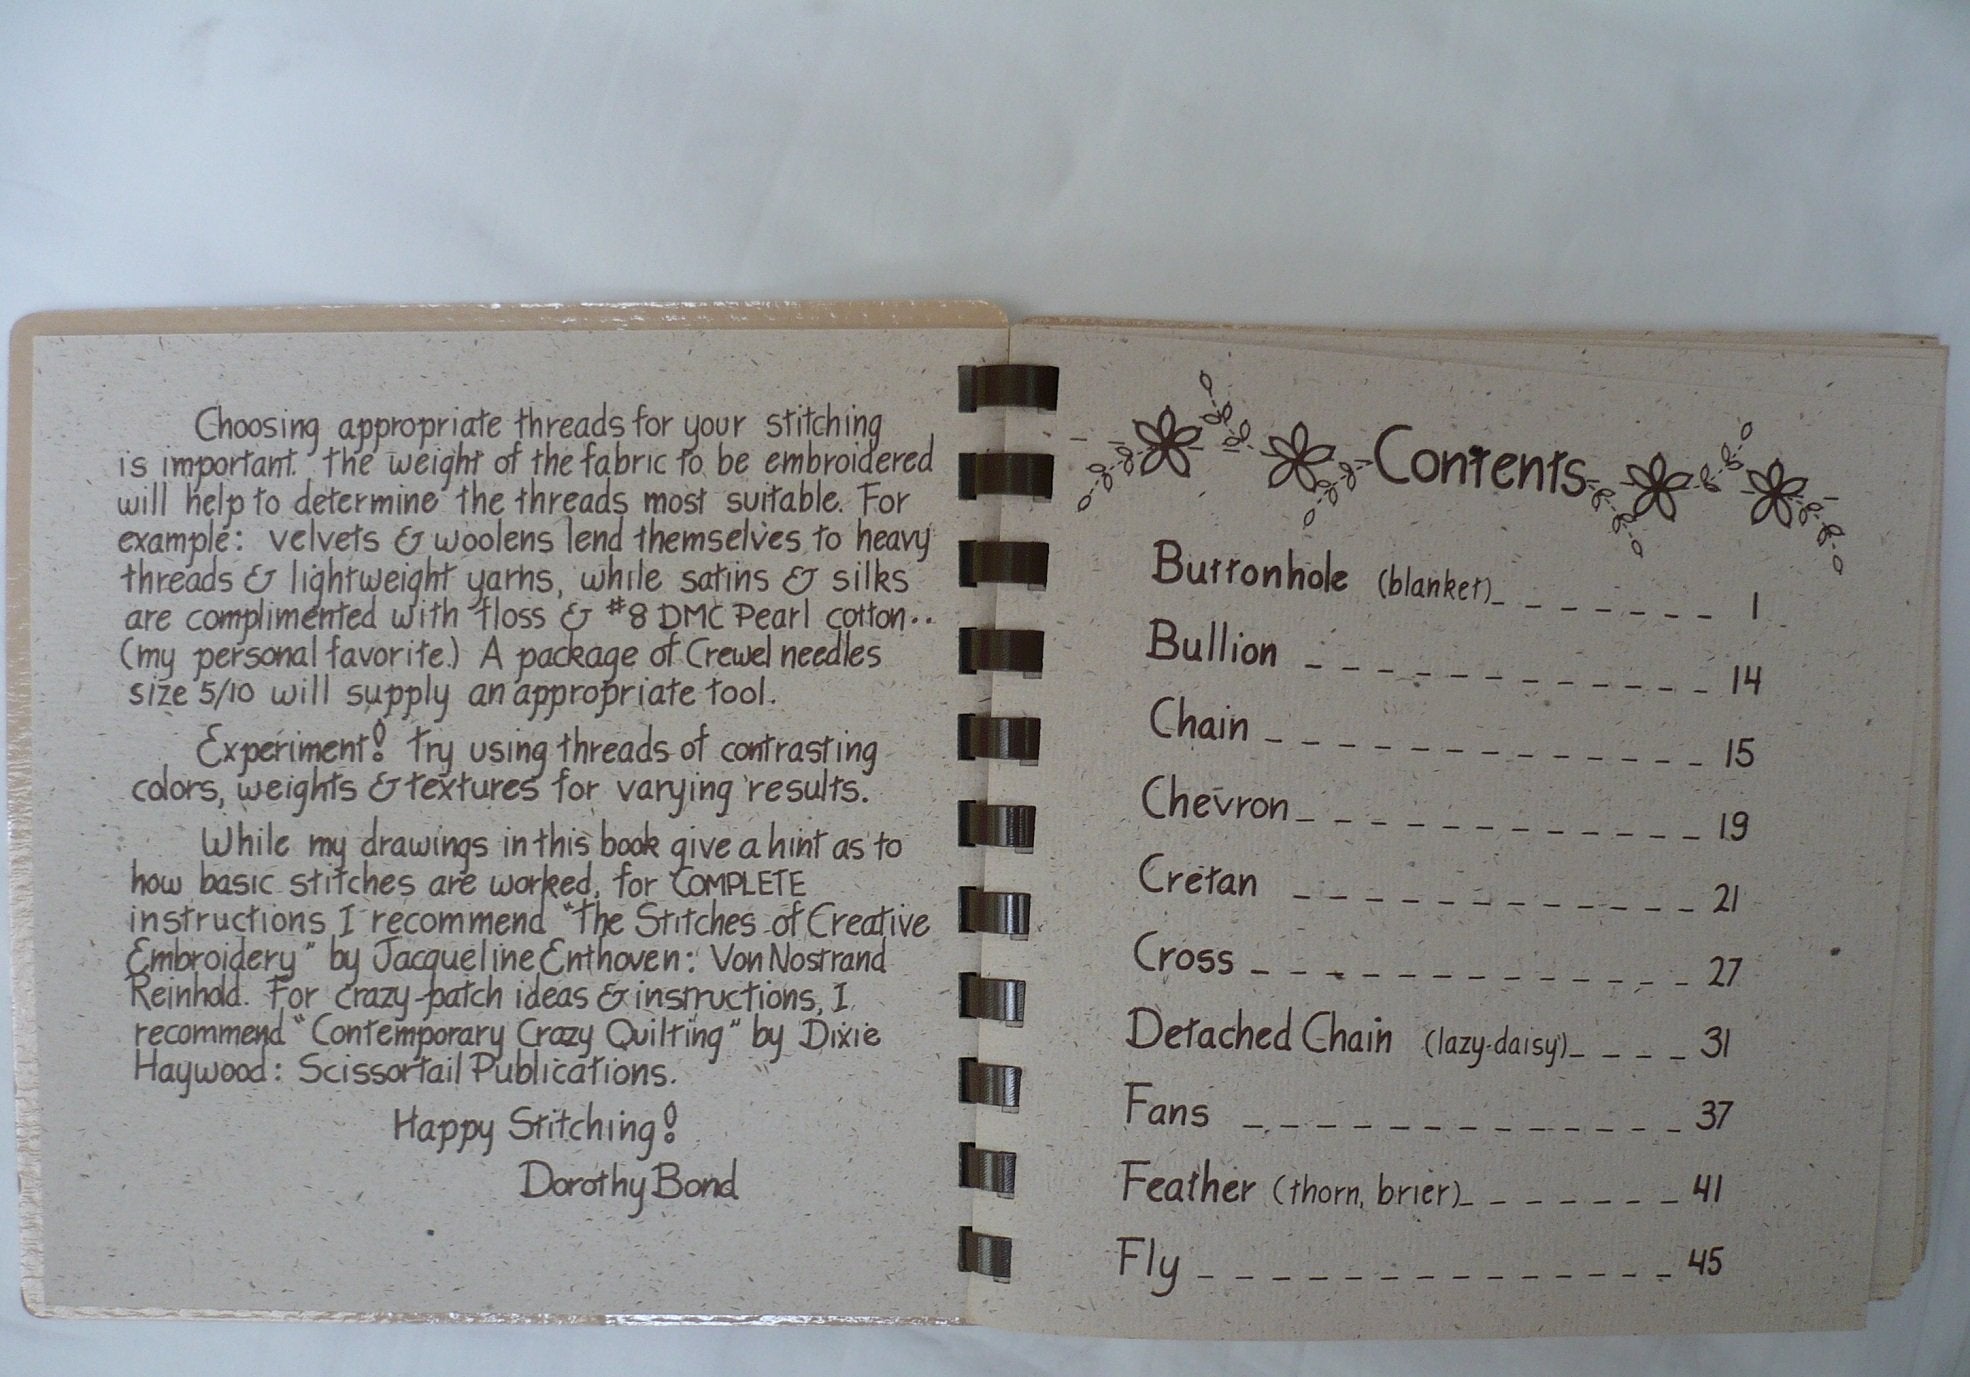 Choosing appropriate threads for your stitching
is important. The weight of the fabric to be embroidered
will help to determine the threads most suitable. For
example: velvets & woolens lend themselves to heavy
threads & lightweight yarns, while satins & silks
are complimented with floss & #8 DMC Pearl cotton..
(my personal favorite.) A package of Crewel needles
size 5/10 will supply an appropriate tool.
Experiment! Try using threads of contrasting
colors, weights & textures for varying results.
While my drawings in this book give a hint as to
how basic stitches are worked, for COMPLETE
instructions I recommend "The Stitches of Creative
Embroidery" by Jacqueline Enthoven: Von Nostrand
Reinhold. For crazy-patch ideas & instructions, I
recommend "Contemporary Crazy Quilting" by Dixie
Haywood: Scissortail Publications.
Happy Stitching!
Dorothy Bond
Contents
Buttonhole (blanket)_ _ _ _ _ _ _ 1
Bullion _ _ _ _ _ _ _ _ _ _ _ 14
Chain _ _ _ _ _ _ _ _ _ _ _ _ 15
Chevron _ _ _ _ _ _ _ _ _ _ _ 19
Cretan _ _ _ _ _ _ _ _ _ _ _ 21
Cross _ _ _ _ _ _ _ _ _ _ _ _ 27
Detached Chain (lazy-daisy)_ _ _ _ 31
Fans _ _ _ _ _ _ _ _ _ _ _ _ 37
Feather (thorn, brier)_ _ _ _ _ _ _ 41
Fly _ _ _ _ _ _ _ _ _ _ _ _ _ 45